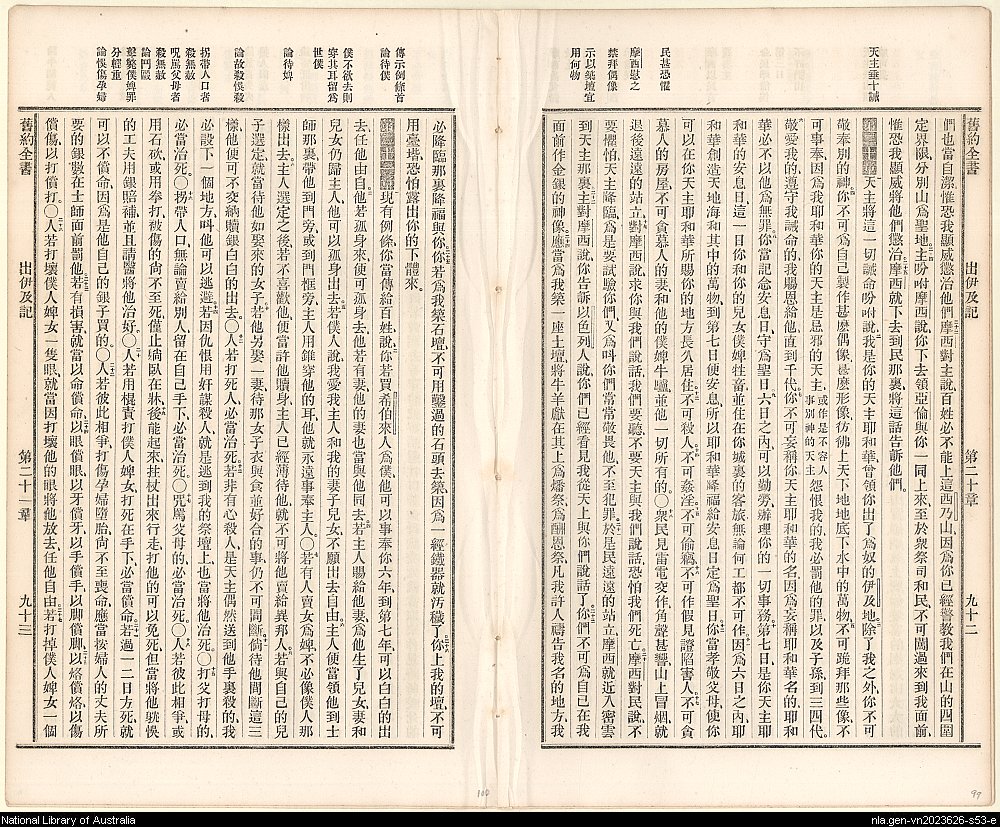 舊約全書 出伊及記 第二十章 九十二
天主垂十誡
民甚恐懼
摩西慰之
禁拜偶像
示以築壇宜
用何物
們也當自潔、惟恐我顯威懲治他們。摩西對主說、百姓必不能上這西乃山、因爲你已經警教我們在山的四圍
定界限、分別山爲聖地。主吩咐摩西說、你下去領亞倫與你一同上來、至於衆祭司和民、不可闖過來到我面前、
惟恐我顯威將他們懲治。摩西就下去到民那裏、將這話告訴他們。
天主將這一切誡命吩咐說、我是你的天主耶和華、曾領你出了爲奴的伊及地。除了我之外、你不可
敬奉別的神。你不可爲自己製作甚麽偶像、甚麽形像、彷彿上天下地、地底下水中的萬物。不可跪拜那些像、不
可事奉、因爲我耶和華你的天主、是忌邪的天主、或作是不容人事別神的天主怨恨我的、我必罰他的罪、以及子孫到三四代。
敬愛我的、遵守我誡命的、我賜恩給他直到千代。你不可妄稱你天主耶和華的名、因爲妄稱耶和華名的、耶和
華必不以他爲無罪。你當記念安息日、守爲聖日。六日之內、可以勤勞辦理你的一切事務。第七日是你天主耶
和華的安息日、這一日你和你的兒女僕婢牲畜、並住在你城裏的客旅、無論何工都不可作。因爲六日之內、耶
和華創造天地海和其中的萬物、到第七日便安息、所以耶和華降福給安息日、定爲聖日。你當孝敬父母、使你
可以在你天主耶和華所賜你的地方長久居住。不可殺人。不可姦淫。不可偷竊。不可作假見證陷害人。不可貪
慕人的房屋、不可貪慕人的妻、和他的僕婢牛驢、並他一切所有的。〇衆民見雷電交作、角聲甚響、山上冒烟、就
退後遠遠的站立。對摩西說、求你與我們說話、我們要聽、不要天主與我們說話、恐怕我們死亡。摩西對民說、不
要懼怕、天主降臨、爲是要試驗你們、又爲叫你們常常敬畏他、不至犯罪。於是民遠遠的站立、摩西就近入密雲
到天主那裏。主對摩西說、你告訴以色列人說、你們已經看見我從天上與你們說話了。你們不可爲自己在我
面前作金銀的神像。應當爲我築一座土壇、將牛羊獻在其上、爲燔祭、爲酬恩祭、凡我許人禱告我名的地方、我
傳示例條首
論待僕
僕不欲去則
穿其耳留爲
世僕
論待婢
論故殺悞殺
拐帶人口者
殺無赦
咒罵父母者
殺無赦
論鬥毆
擊斃僕婢罪
分輕重
論悞傷孕婦
必降臨那裏、降福與你。你若爲我築石壇、不可用鑿過的石頭去築、因爲一經鐵器就汚穢了。你上我的壇、不可
用臺堦、恐怕露出你的下體來。
現有例條、你當傳給百姓說、你若買希伯來人爲僕、他可以事奉你六年、到第七年可以白白的出
去、任他自由。他若孤身來、便可孤身去、他若有妻、他的妻也當與他同去。若主人賜給他妻、爲他生了兒女、妻和
兒女仍歸主人、他可以孤身出去。若僕人說、我愛我主人、和我的妻子兒女、不願出去自由。主人便當領他到士
師那裏、帶他到門旁、或到門框旁、主人用錐穿他的耳、他就永遠事奉主人。〇若有人賣女爲婢、不必像僕人那
樣出去。主人選定之後、若不喜歡他、便當許他贖身、主人已經薄待他、就不可將他賣給異邦人。若與自己的兒
子選定、就當待他如娶來的女子。若他另娶一妻、待那女子、衣與食並好合的事、仍不可間斷。倘待他間斷這三
樣、他便可不交納贖銀、白白的出去。〇人若打死人、必當治死。若非有心殺人、是天主偶然送到他手裏殺的、我
必設下一個地方、叫他可以逃避。若因仇恨用奸謀殺人、就是逃到我的祭壇上、也當將他治死。〇打父打母的、
必當治死。〇拐帶人口、無論賣給別人、留在自己手下、必當治死。〇咒罵父母的、必當治死。〇人若彼此相爭、或
用石砍、或用拳打、被傷的尙不至死、僅止躺臥在牀、後能起來、拄杖出來行走、打他的可以免死、但當將他躭悞
的工夫用銀賠補、並且請醫將他治好。〇人若用棍責打僕人婢女、打死在手下、必當償命。若過一二日方死、就
可以不償命、因爲是他自己的銀子買的。〇人若彼此相爭、打傷孕婦墮胎、尙不至喪命、應當按婦人的丈夫所
要的銀數、在士師面前罰他。若有損害、就當以命償命、以眼償眼、以牙償牙、以手償手、以脚償脚、以烙償烙、以傷
償傷、以打償打。〇人若打壞僕人婢女一隻眼、就當因打壞他的眼、將他放去、任他自由。若打掉僕人婢女一個
舊約全書 出伊及記 第二十一章 九十三
100
99
National Library of Australia
nla.gen-vn2023626-s53-e